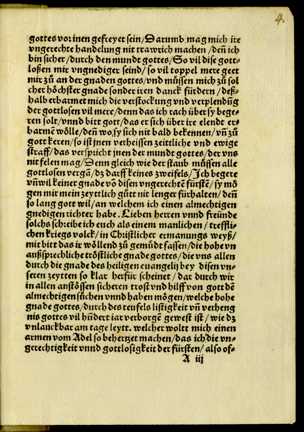 4.
gottes vor inen gefreyet sein/ Darumb mag mich ire
vngerechte handelung nit trawrich machen/ deñ ich
bin sicher/ durch den mundt gottes/ So vil dise gott-
loßen mit vngnediger seind/ so vil toppel mere geet
mir zů an der gnaden gottes/ vnd müssen mich zů sol
cher höchster gnade sonder iren danck fürdern/ deß-
halb erbarmet mich die verstockung vnd verplendũg
der gottlosen vil mere/ denn das ich tach über sy bege-
ren solt/ vnnd bitt gott/ das er sich über ire elende er-
barmē wölle/ deñ wo/ sy sich nit bald bekennen/ vñ zů
gott keren/ so ist jnen verheissen zeitliche vnd ewige
straff/ das verspricht jnen der mundt gottes/ der vns
nit felen mag/ Denn gleich wie der staub müssen alle
gottlosen vergā/ dz darff keines zweifels/ Ich begere
vñ wil keiner gnade vō disen vngerechtē fürstē/ sy mö
gen mit mein zeytlich gůt nit lenger fürhalten/ deñ
so lang gott wil/ an welchem ich einen almechtigen
gnedigen richter habe. Lieben herren vnnd freünde
solchs schreibe ich euch als einem manlichen/ treffli-
chen kriegs volck/ in Christlicher ermanungs weyß/
mit bitt das ir wöllend zů gemüt fassen/ die hohe vn
außsprechliche tröstliche gnade gottes/ die vns allen
durch die gnade des heiligen euangelij bey disen vn-
seren zeytten so klar herfür scheinet/ dar durch wir
in allen anstössen sicheren trost vnd hilff von gott dē
almechtigen süchen vnnd haben mögen/ welche hohe
gnade gottes/ durch des teufels listigkeit vñ verheng
nis gottes vil hundert iar verborgē gewest ist/ wie dz
vnlauckbar am tage leytt. welcher wolt mich einen
armen vom Adel so beherczt machen/ das ich die vn-
gerechtigkeit vnnd gottlosigkeit der fürsten/ also of-
A iij